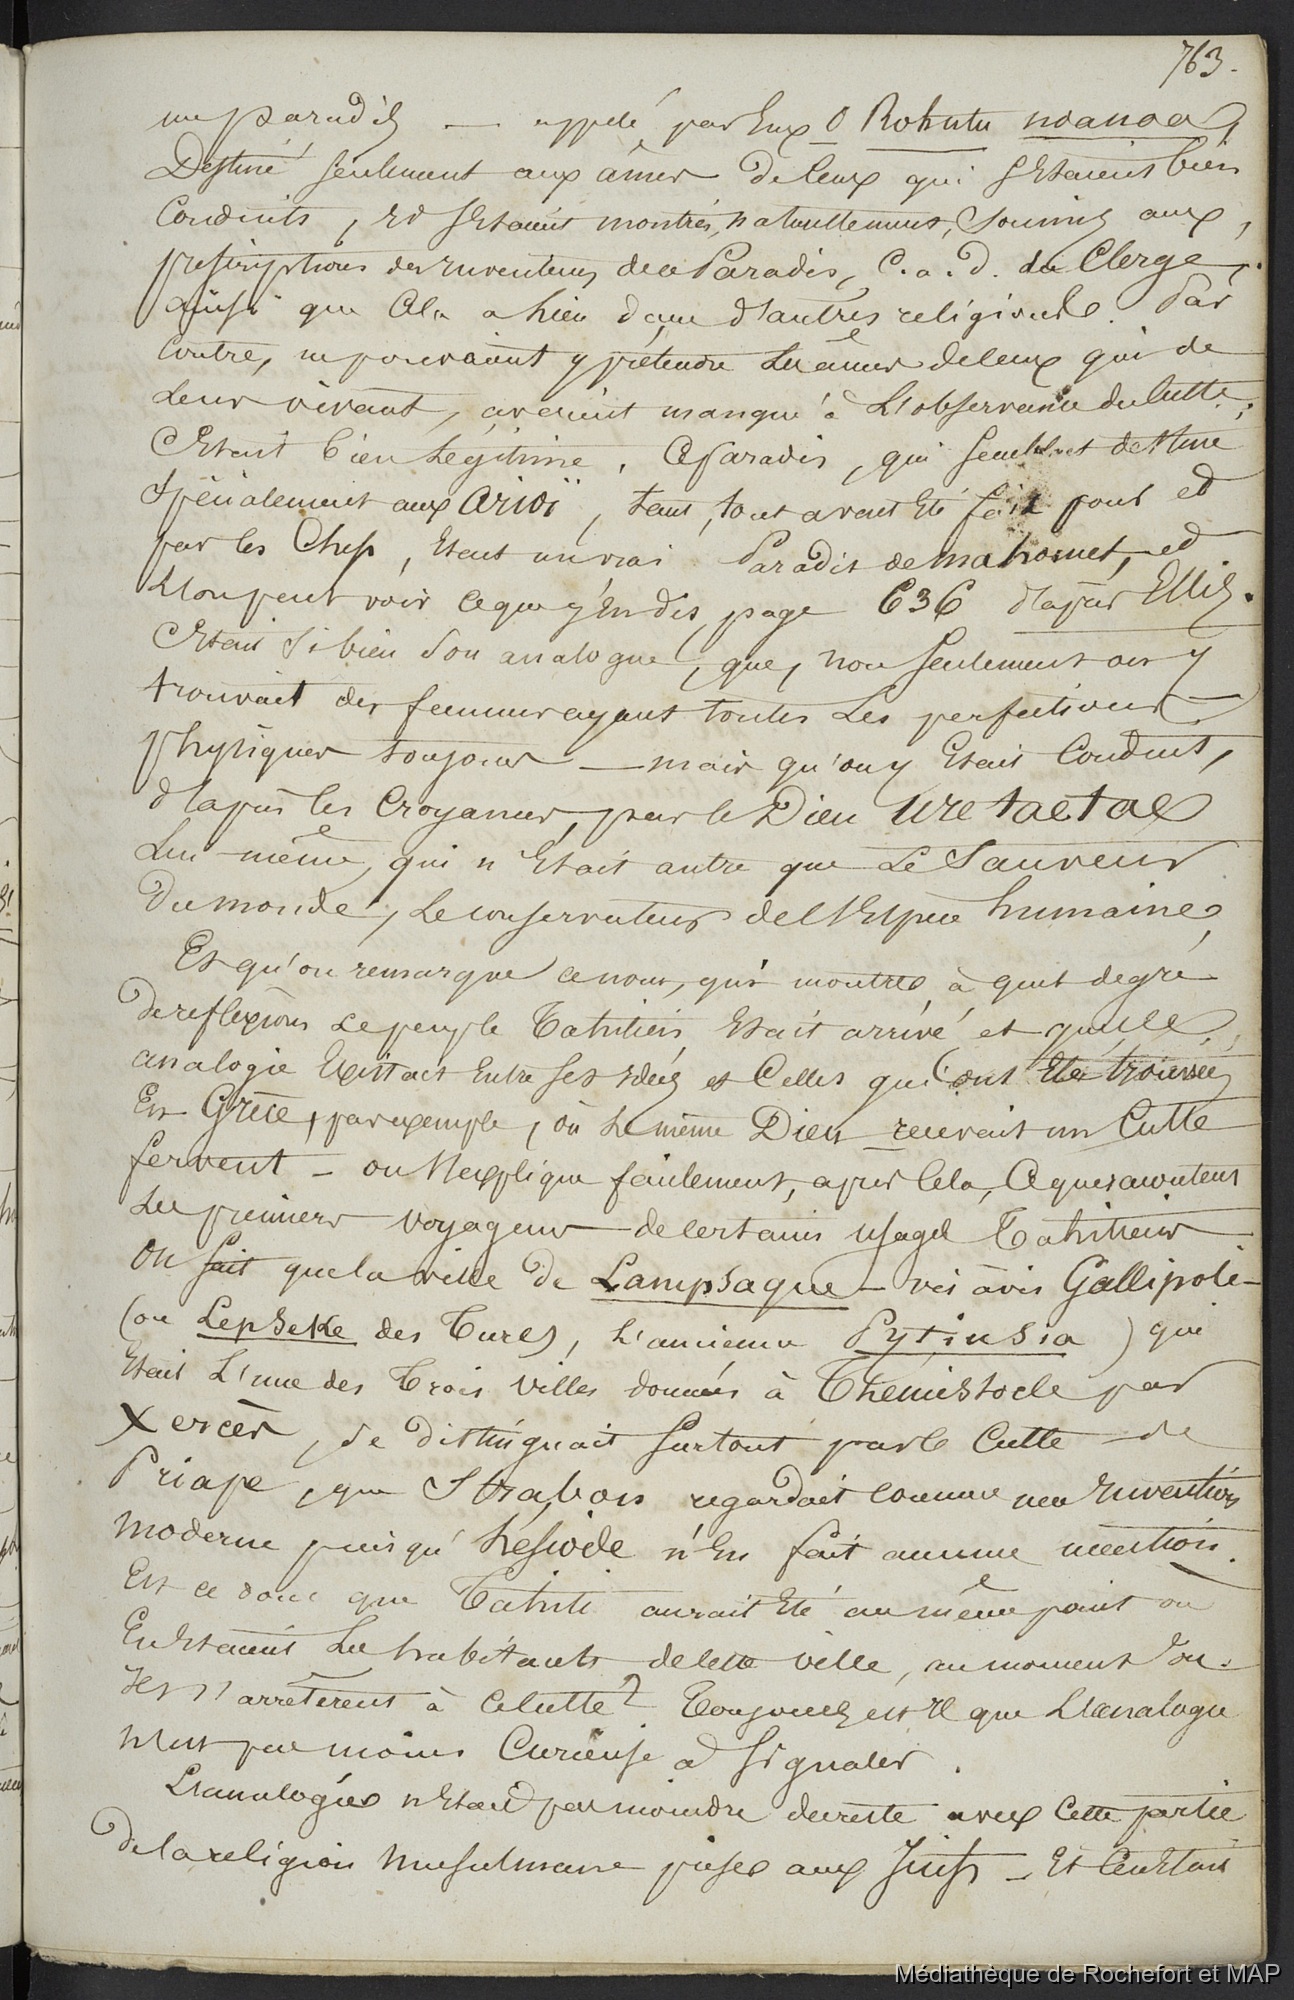 763.
un paradis — appelé par eux O Rohutu noanoa,
Destiné seulement aux âmes de ceux qui s'étaient bien
Conduits, et s'étaient montrés, naturellement, soumis aux
prescriptions des inventeurs de ce Paradis, C. a. d. du Clergé,
ainsi que cela a lieu dans d'autres religions. Par
Contre, ne pouvaient y prétendre les âmes de ceux qui de
leur vivant, avaient manqué à l'observance du culte.
C'était bien légitime. Ce Paradis, qui semblait destiné
spécialement aux Arioï, tant, tout avait été fait pour et
par les Chefs, était un vrai Paradis de mahomet, et
l'on peut voir ce que j'en dis, page 636 d'après Ellis.
C'était si bien son analogue, que, non seulement on y
trouvait des femmes ayant toutes les perfections —
physiques toujours — mais qu'on y était Conduit,
d'après les Croyances, par le Dieu Uretaetae
lui-même, qui n'était autre que le Sauveur
du monde, le conservateur de l'espèce humaine.
Et qu'on remarque ce nom, qui montre à quel degré
de réflexions le peuple Tahitien était arrivé et quelle
analogie existait entre ses idées et Celles qui ont été trouvées
En Grèce, par exemple, où le même Dieu recevait un Culte
fervent — on s'explique facilement, après cela, ce que racontent
les premiers voyageurs de certains usages Tahitiens
On sait que la ville de Lampsaque — vis à vis Gallipoli —
(ou Lepseke des Turcs, l'ancienne Pytiusia) qui
était l'une des Trois villes données à Thémistocle par
Xercès, se distinguait surtout par le Culte de
Priape, que Strabon regardait comme une invention
moderne puisqu' hesiode n'en fait aucune mention.
Est ce donc que Tahiti aurait été au même point où
En étaient les habitants de cette ville, au moment où
ils s'arrêtèrent à ce culte? Toujours est il que l'analogie
n'est pas moins Curieuse à signaler.
L'analogie n'était pas moindre du reste avec Cette partie
de la religion musulmane prise aux Juifs — Et C'en était